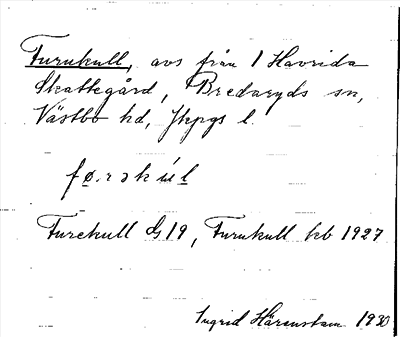 Furukull, avs från 1 Havrida
Skattegård, Bredaryds sn,
Västbo hd, Jkpgs l.
fø.rəkúl
Furekull GS 19, Furukull kb 1927
Ingrid Härenstam 1930